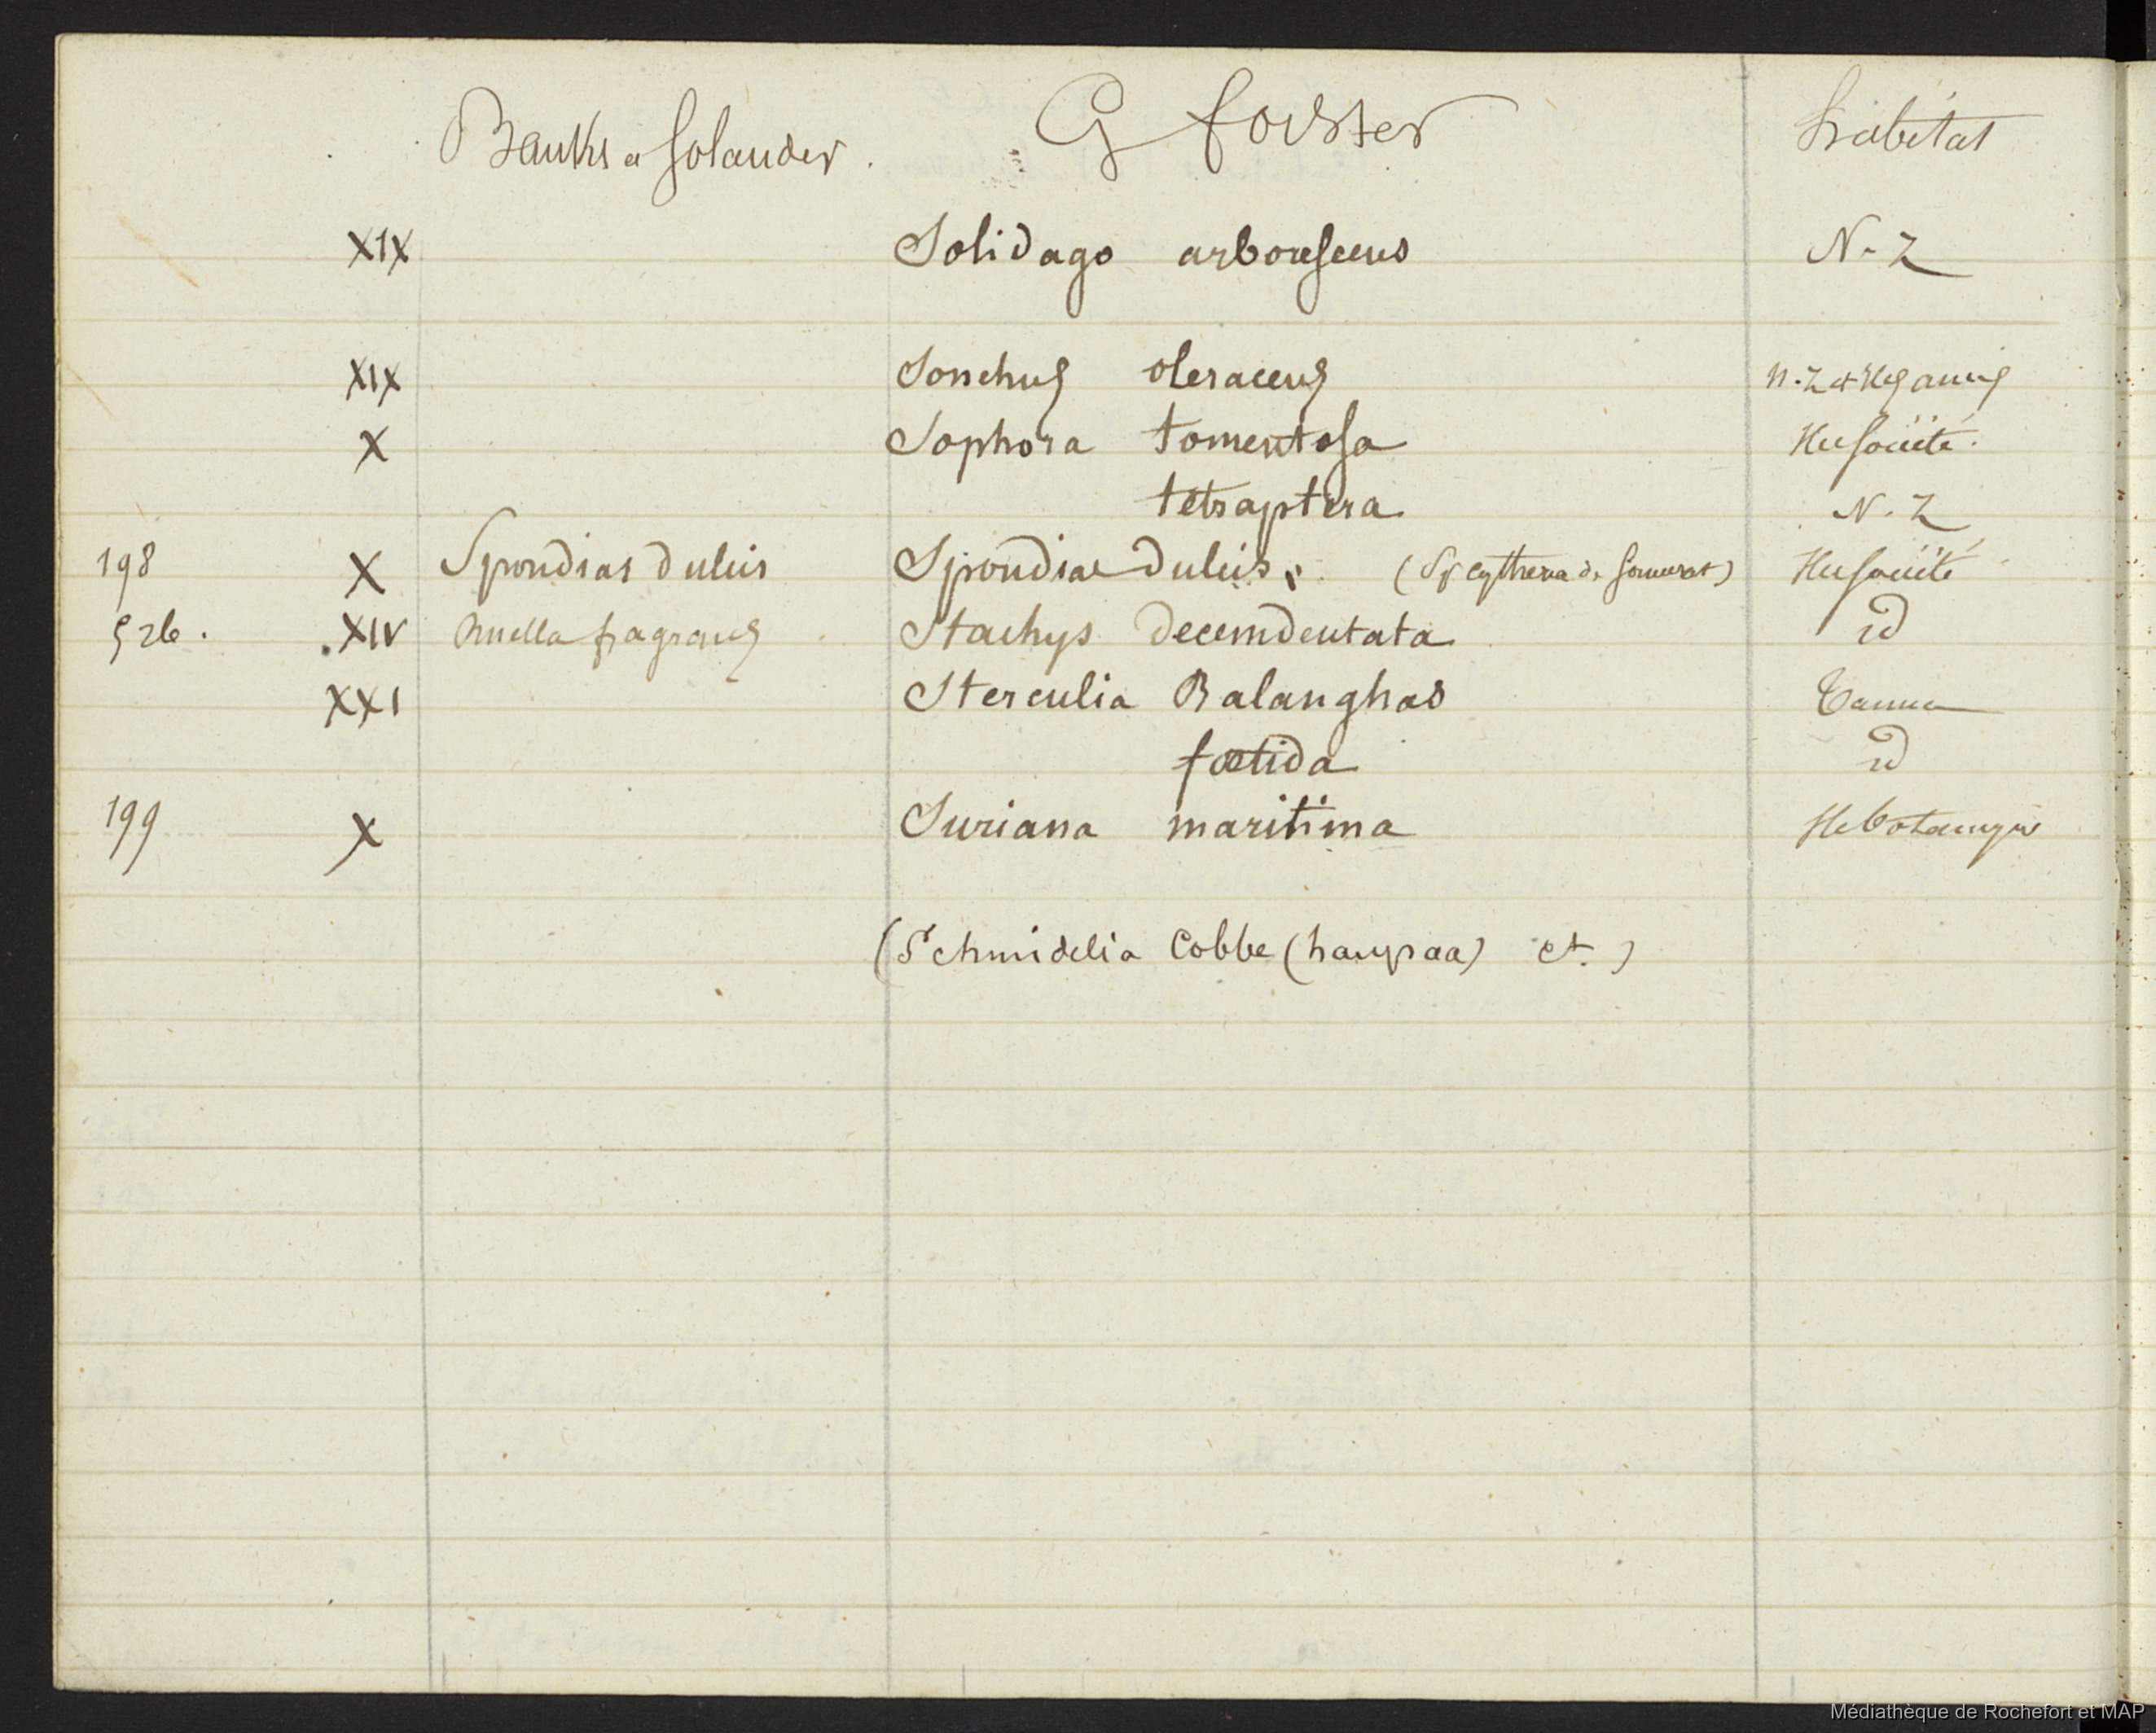 Banks et Solander. G forster habitat
XIX Solidago arborescens N. Z
XIX Sonchus oleraceus N. Z et Iles amis
X Sophora tomentosa Iles Société.
tetraptera N. Z
198 X Spondias dulcis Spondias dulcis. (Sp cytherea de Sonnerat) Iles Société
526. XIV fragrans Stachys decemdentata id
XXI Sterculia Balanghas Tanna
fœtida id
199 X Suriana maritima
(Schmidelia Cobbe (haupaa) et.)
Médiathèque de Rochefort et MAP